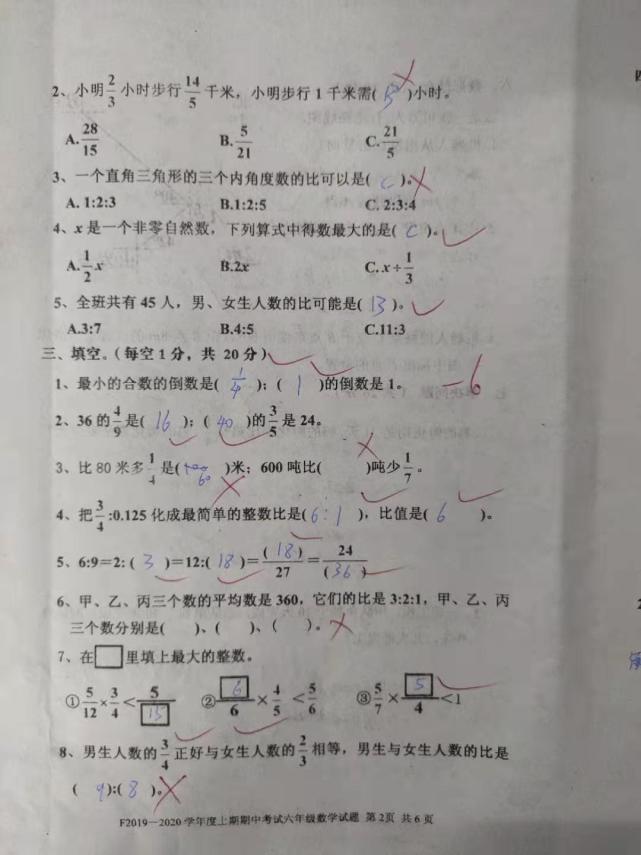 2、小明2/3小时步行14/5千米，小明步行1千米需( B )小时。
A.28/15 B.5/21 C.21/5
3、一个直角三角形的三个内角度数的比可以是( C )。
A. 1:2:3 B.1:2:5 C. 2:3:4
4、x 是一个非零自然数，下列算式中得数最大的是( C )。
A.1/2x B.2x C.x÷1/3
5、全班共有 45 人，男、女生人数的比可能是( B )。
A.3:7 B.4:5 C.11:3
三、填空。（每空 1 分，共 20 分） -6
1、最小的合数的倒数是( 1/4 )；( 1 )的倒数是 1。
2、36 的4/9是( 16 )；( 40 )的3/5是 24。
3、比 80 米多1/4是( 60 )米；600 吨比( )吨少1/7。
4、把3/4:0.125 化成最简单的整数比是( 6:1 )，比值是( 6 )。
5、6:9=2:( 3 )=12:( 18 )=( 18 )/27=24/( 36 )
6、甲、乙、丙三个数的平均数是 360，它们的比是 3:2:1，甲、乙、丙
三个数分别是( )、( )、( )。
7、在□里填上最大的整数。
①5/12×3/4<5/15 ②6/6×4/5<5/6 ③5/7×5/4<1
8、男生人数的3/4正好与女生人数的2/3相等，男生与女生人数的比是
( 9 ):( 8 )。
F2019—2020 学年度上期期中考试六年级数学试题 第 2页 共 6 页